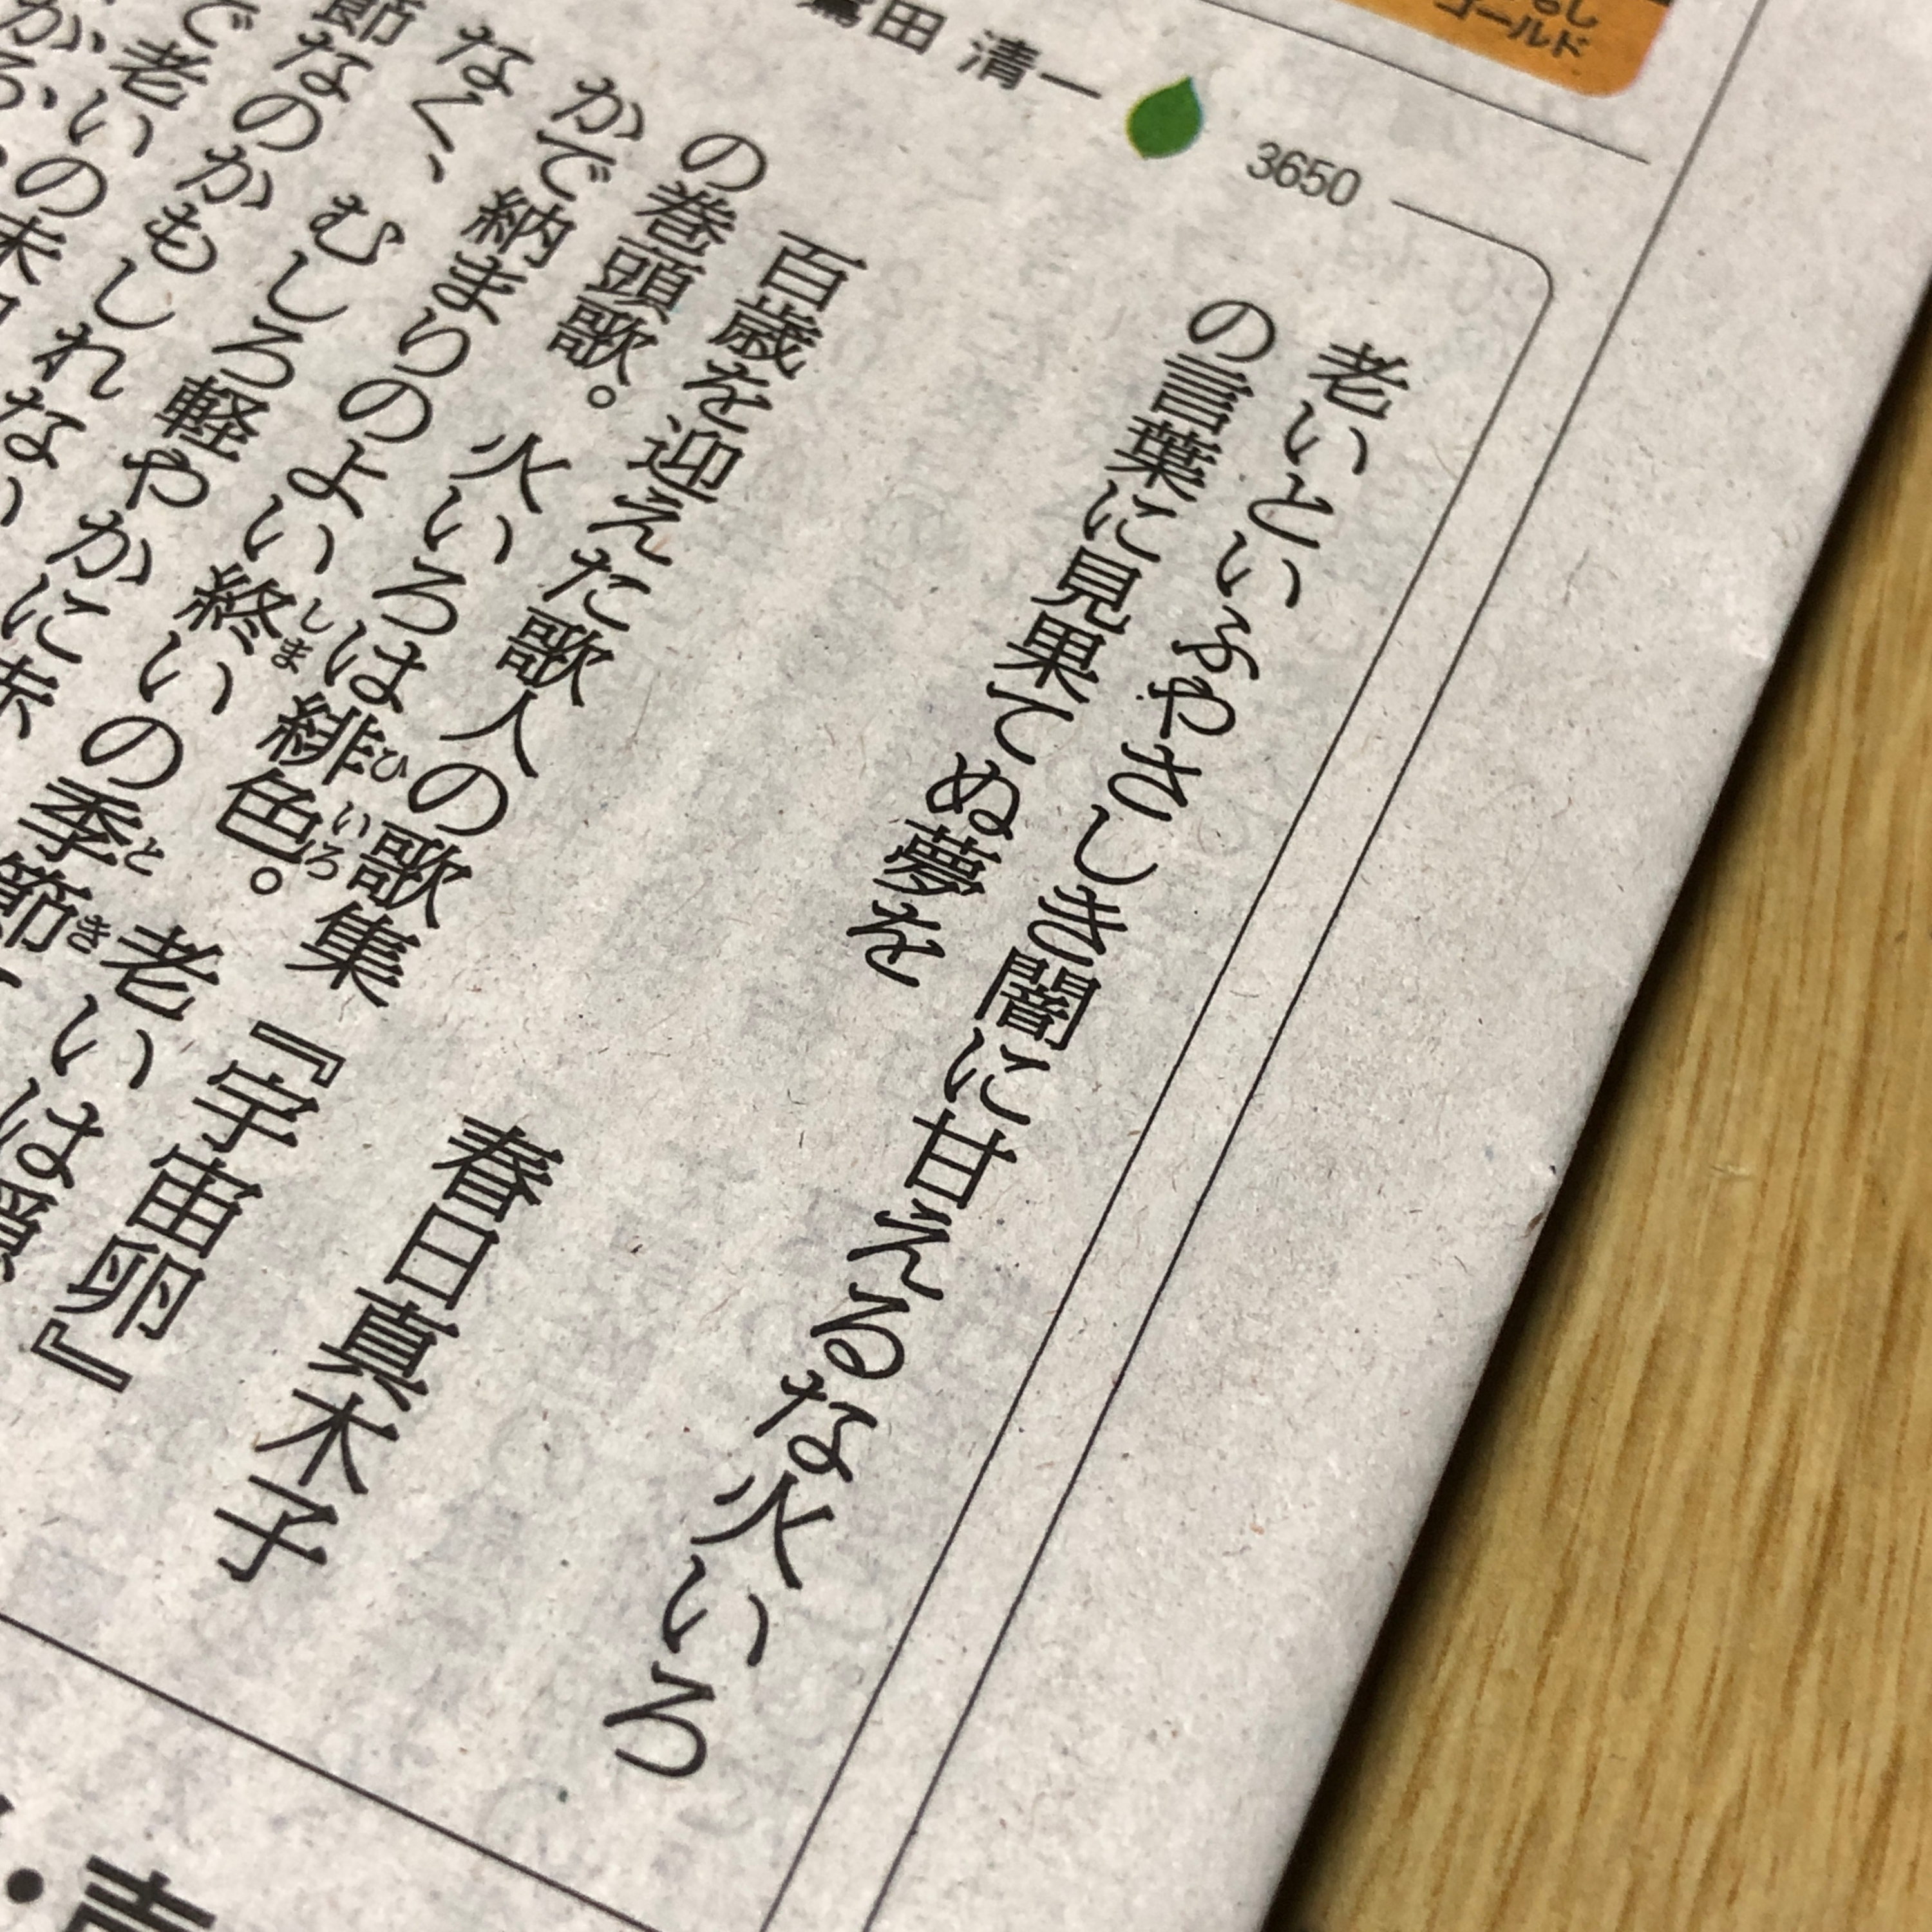 ゴールド
鷲田 清一
3650
老いといふやさしき闇に甘えるな火いろ
の言葉に見果てぬ夢を
春日真木子
百歳を迎えた歌人の歌集『宇宙卵』
の巻頭歌。火いろは緋色。老いは
かで納まりのよい終いの季節
なく、むしろ軽やかに
節なのかもしれない
で老いの末
ひいろ
しま
とき